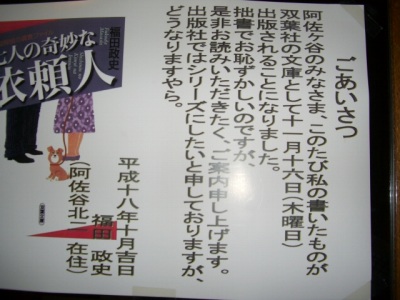 ごあいさつ
阿佐ケ谷のみなさま、このたび私の書いたものが
双葉社の文庫として十一月十六日(木曜日)
出版されることになりました。
拙書でお恥ずかしいのですが、
是非お読みいただきたく、ご案内申し上げます。
出版社ではシリーズにしたいと申しておりますが、
どうなりますやら。
平成十八年十月吉日
福田 政史
(阿佐谷北二 在住)
人の奇妙な
依頼人
福田政史